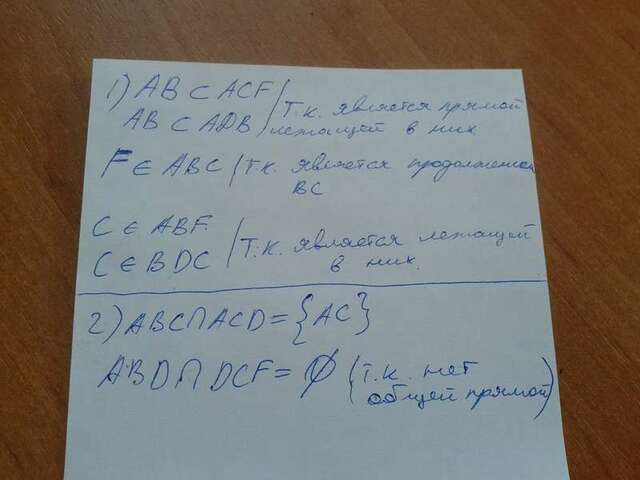 1) AB ⊂ ACF / т.к. является прямой
AB ⊂ ADB / лежащей в них
F ∈ ABC / т.к. является продолжением
BC
C ∈ ABF
C ∈ BDC / т.к. является лежащей
в них.
2) ABC ∩ ACD = {AC}
ABD ∩ DCF = ∅ (т.к. нет
общей прямой)